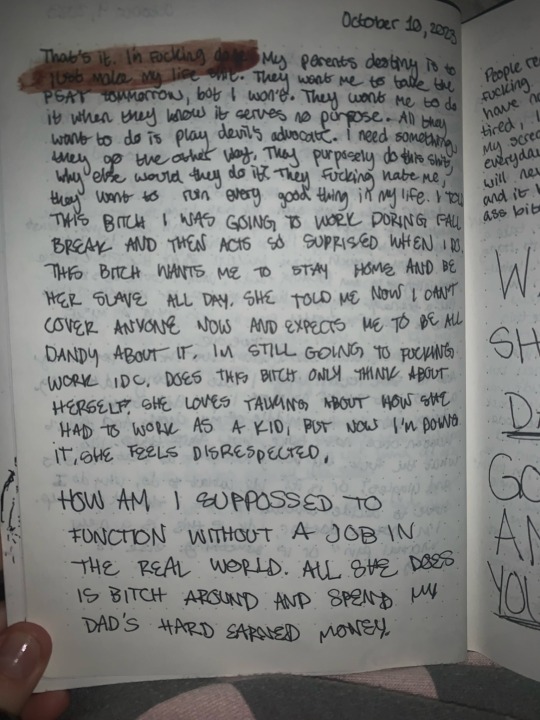 October 10, 2023
That's it. I'm fucking done. My parents destiny is to
just make my life shit. They want me to take the
PSAT tommorow, but I won't. They want me to do
it when they know it serves no purpose. All they
want to do is play devil's advocate. I need something,
they go the other way. They purpsely do this shit,
why else would they do it? They fucking hate me,
they want to ruin every good thing in my life. I TOLD
THIS BITCH I WAS GOING TO WORK DURING FALL
BREAK AND THEN ACTS SO SUPRISED WHEN I DO.
THIS BITCH WANTS ME TO STAY HOME AND BE
HER SLAVE ALL DAY. SHE TOLD ME NOW I CAN'T
COVER ANYONE NOW AND EXPECTS ME TO BE ALL
DANDY ABOUT IT. IM STILL GOING TO FUCKING
WORK IDC. DOES THIS BITCH ONLY THINK ABOUT
HERSELF? SHE LOVES TALKING ABOUT HOW SHE
HAD TO WORK AS A KID, BUT NOW I'M DOING
IT, SHE FEELS DISRESPECTED.
HOW AM I SUPPOSSED TO
FUNCTION WITHOUT A JOB IN
THE REAL WORLD. ALL SHE DOES
IS BITCH AROUND AND SPEND MY
DAD'S HARD EARNED MONEY.
People re
fucking
have no
tired. I
My scre
everyday
will nev
and it h
ass bit
W
SH
DA
GO
AN
YOU